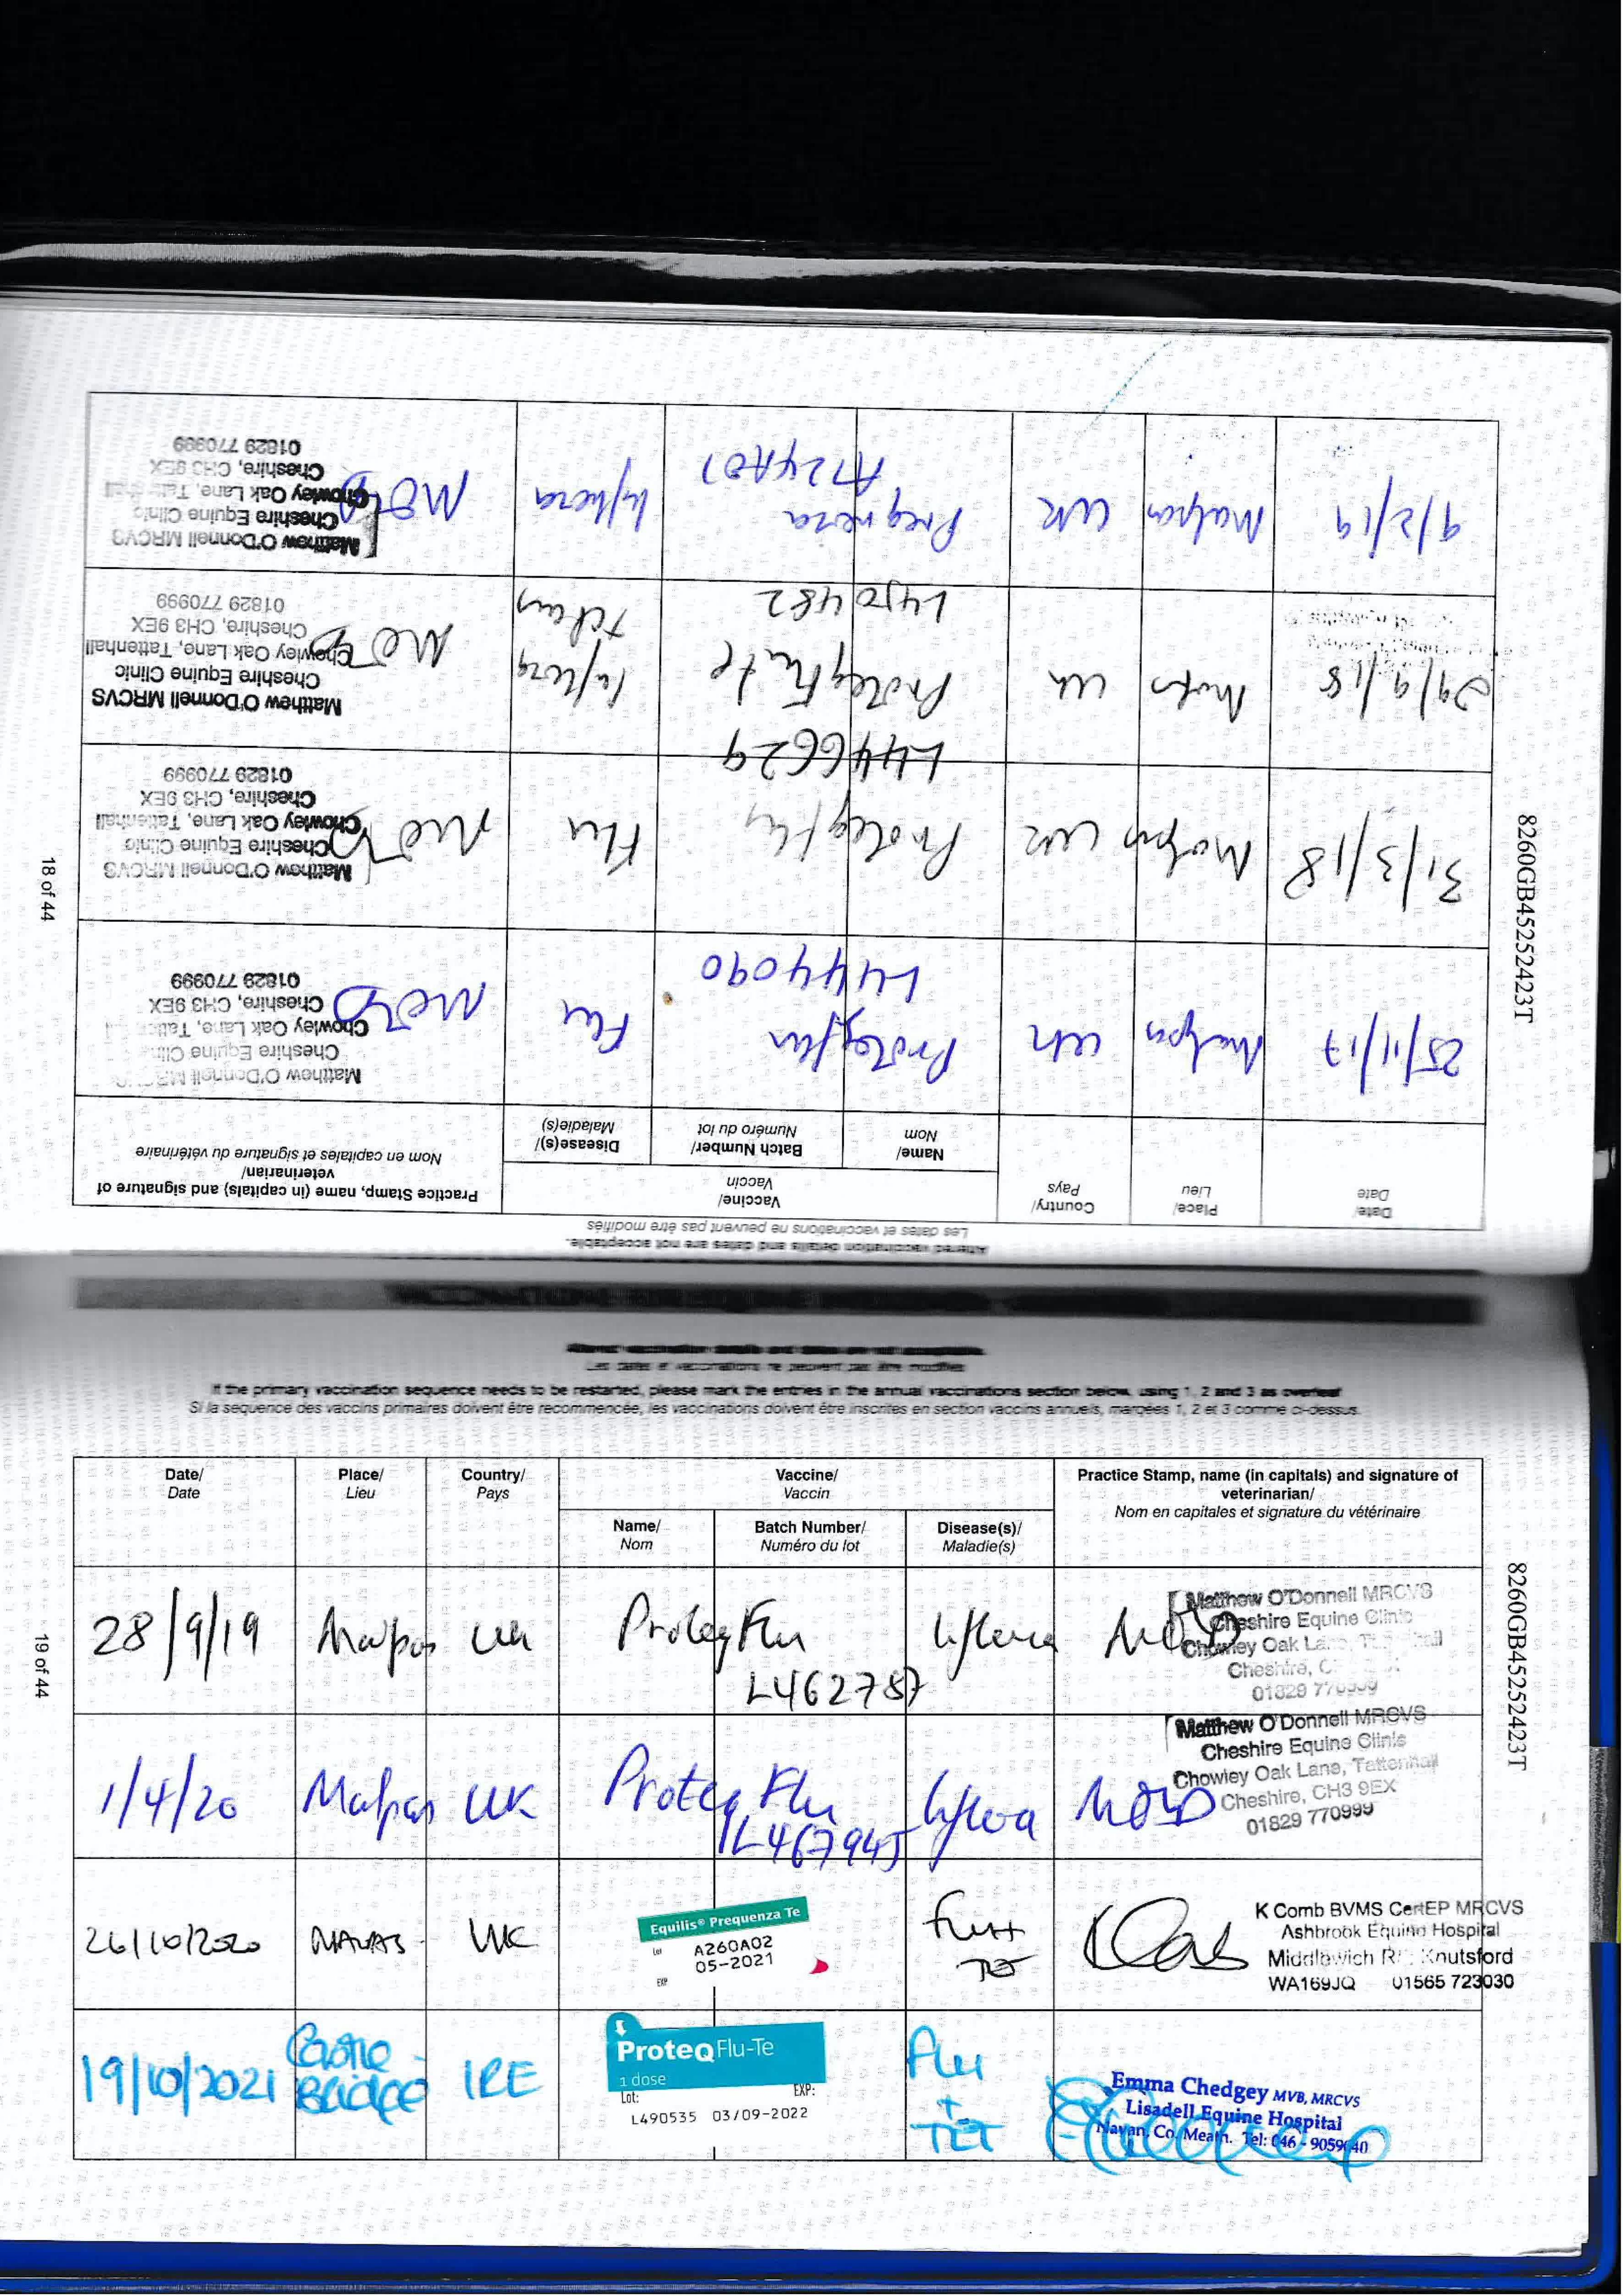 Altered vaccination details and dates are not acceptable.
Les dates et vaccinations ne peuvent pas être modifiés
Date/
Date
Place/
Lieu
Country/
Pays
Vaccine/
Vaccin
Name/
Nom
Batch Number/
Numéro du lot
Disease(s)/
Maladie(s)
Practice Stamp, name (in capitals) and signature of
veterinarian/
Nom en capitales et signature du vétérinaire
25/11/17
Malpas
UK
ProteqFlu
L444090
Flu
MOD
Matthew O'Donnell MRCVS
Cheshire Equine Clinic
Chowley Oak Lane,
Cheshire, CH3 9EX
01829 770999
31/3/18
Malpas
UK
ProteqFlu
L446629
Flu
MOD
Matthew O'Donnell MRCVS
Cheshire Equine Clinic
Chowley Oak Lane, Tattenhall
Cheshire, CH3 9EX
01829 770999
29/9/18
Malpas
UK
ProteqFlu te
L450482
MOD
Matthew O'Donnell MRCVS
Cheshire Equine Clinic
Chowley Oak Lane, Tattenhall
Cheshire, CH3 9EX
01829 770999
9/2/19
Malpas
UK
A724A01
MOD
Matthew O'Donnell MRCVS
Cheshire Equine Clinic
Chowley Oak Lane,
Cheshire, CH3 9EX
01829 770999
18 of 44
8260GB45252423T
Altered vaccination details and dates are not acceptable.
Les dates et vaccinations ne peuvent pas être modifiés
If the primary vaccination sequence needs to be restarted, please mark the entries in the annual vaccinations section below, using 1, 2 and 3 as overleaf
Si la sequence des vaccins primaires doivent être recommencée, les vaccinations doivent être inscrites en section vaccins annuels, marqées 1, 2 et 3 comme ci-dessus.
Date/
Date
Place/
Lieu
Country/
Pays
Vaccine/
Vaccin
Name/
Nom
Batch Number/
Numéro du lot
Disease(s)/
Maladie(s)
Practice Stamp, name (in capitals) and signature of
veterinarian/
Nom en capitales et signature du vétérinaire
28/9/19
Malpas
UK
ProteqFlu
L462787
MOD
Matthew O'Donnell MRCVS
Cheshire Equine Clinic
Chowley Oak Lane,
Cheshire,
01829 770999
1/4/20
Malpas
UK
Proteq Flu
L467945
MOD
Matthew O'Donnell MRCVS
Cheshire Equine Clinic
Chowley Oak Lane, Tattenhall
Cheshire, CH3 9EX
01829 770999
26/10/2020
UK
Equilis® Prequenza Te
Lot
A260A02
05-2021
EXP
Flu+
K Comb BVMS CertEP MRCVS
Ashbrook Equine Hospital
Middlewich Knutsford
WA169JQ 01565 723030
19/10/2021
Castle
Bridge
IRE
ProteqFlu-Te
1 dose
Lot: EXP:
L490535 03/09-2022
Flu
+
TET
Emma Chedgey MVB, MRCVS
Lisadell Equine Hospital
Navan, Co. Meath. Tel: 046 - 9059040
19 of 44
8260GB45252423T